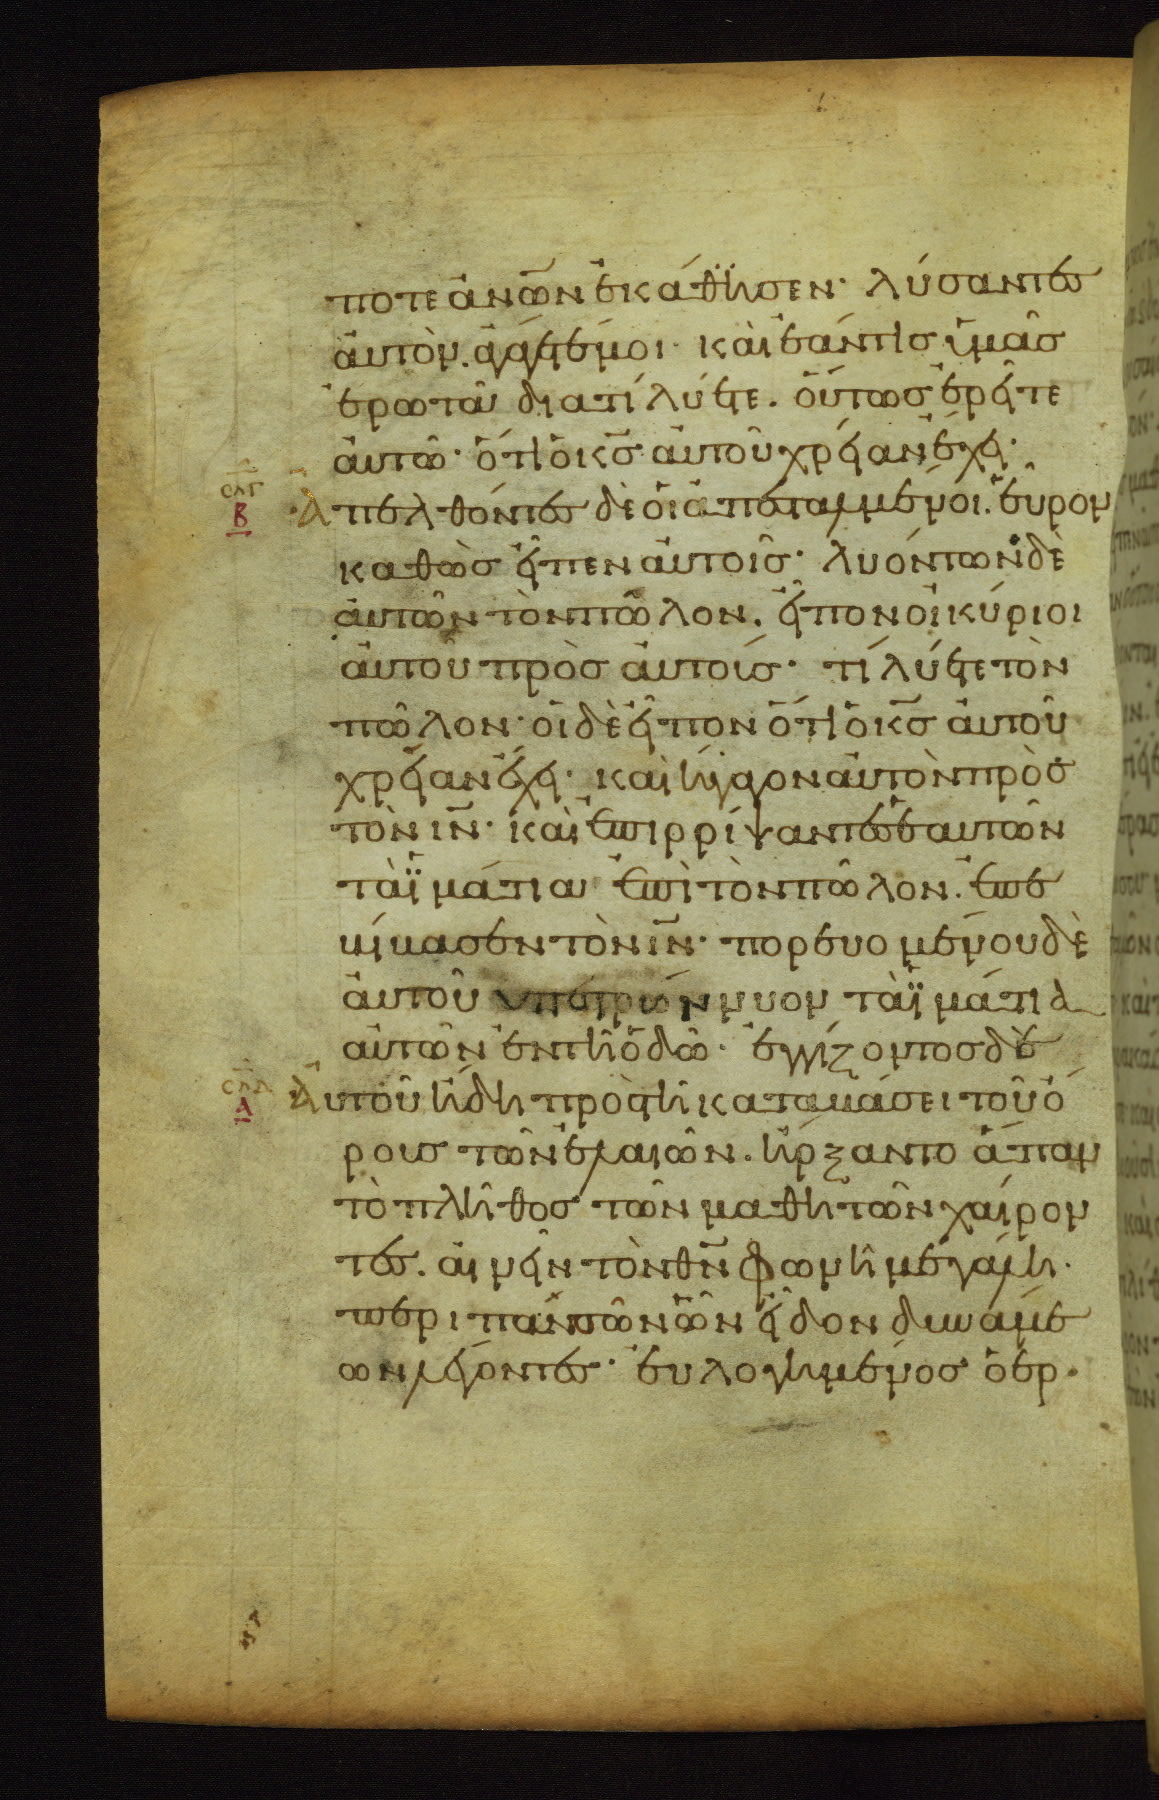 ποτε ἀνῶν ἐκάθϊσεν· λύσαντες
ἀυτὸν. ἀγάγετέ μοι· καὶ ἐάντις ὑμᾶς
ἐρωτᾶ διατί λύετε. ὅυτως ἐρεῖτε
ἀυτῶ· ὅτι ὁ κ̅ς̅ ἀυτοῦ χρείαν ἔχει·
σλγ Β
Ἀπελθόντες δὲ ὁι ἀπεσταλμένοι. ἕυρον
καθὼς εἶπεν ἀυτοῖς· λυόντων δὲ
ἀυτῶν τὸν πῶλον. εἶπον ὁι κύριοι
ἀυτοῦ πρὸς ἀυτούς· τί λύετε τὸν
πῶλον· ὁι δὲ εἶπον ὅτι ὁ κ̅ς̅ ἀυτοῦ
χρείαν ἔχει· καὶ ἤγαγον ἀυτὸν πρὸς
τὸν ι̅ν̅· καὶ ἐπιρρίψαντες ἑαυτῶν
τὰ ϊμάτια ἐπὶ τὸν πῶλον. ἐπε
βίβασεν τὸν ι̅ν̅· πορευομένου δὲ
ἀυτοῦ ὑπεστρώννυον τὰ ϊμάτια
ἀυτῶν ἐν τῆ ὁδῶ· ἐγγίζοντος δὲ
σλδ Α
Ἀυτοῦ ἤδη πρὸς τῆ καταβάσει τοῦ ὄ
ρους τῶν ἐλαιῶν. ἤρξαντο ἅπαν
τὸ πλῆθος τῶν μαθητῶν χαίρον
τες. αἰνεῖν τὸν θ̅ν̅ φωνῆ μεγάλη·
περι πασῶν ὧν εἶδον δυνάμε
ων λέγοντες· ἐυλογημένος ὁ ἐρ·